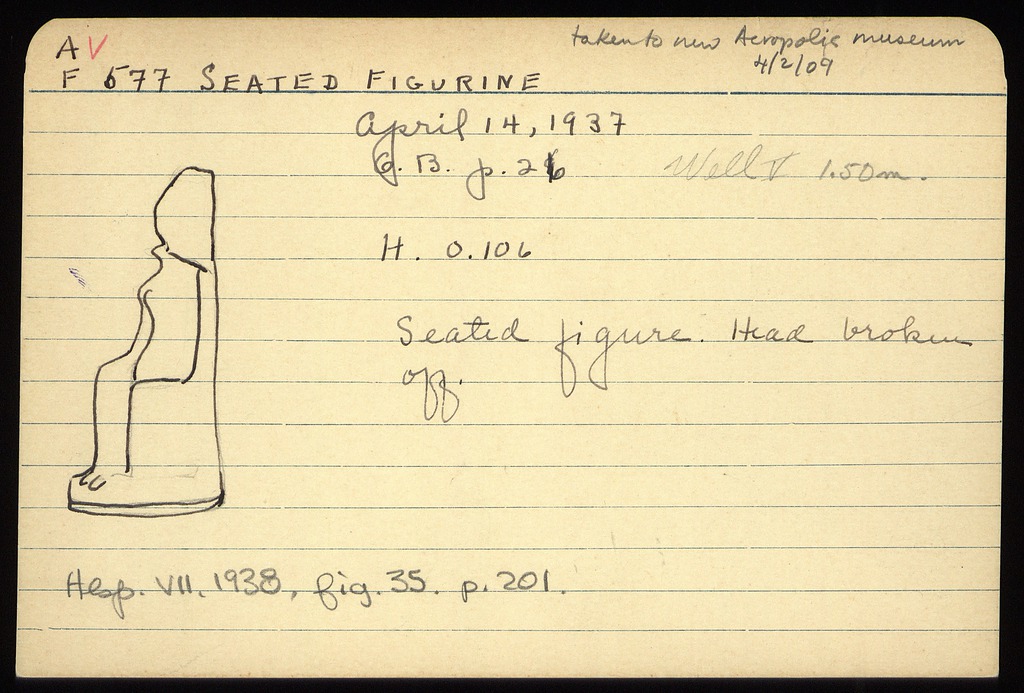 A V
taken to new Acropolis museum
4/2/09
F 577 SEATED FIGURINE
April 14, 1937
G. B. p. 26
Well V 1.50m.
H. 0.106
Seated figure. Head broken
off.
Hesp. VII, 1938, fig. 35. p. 201.